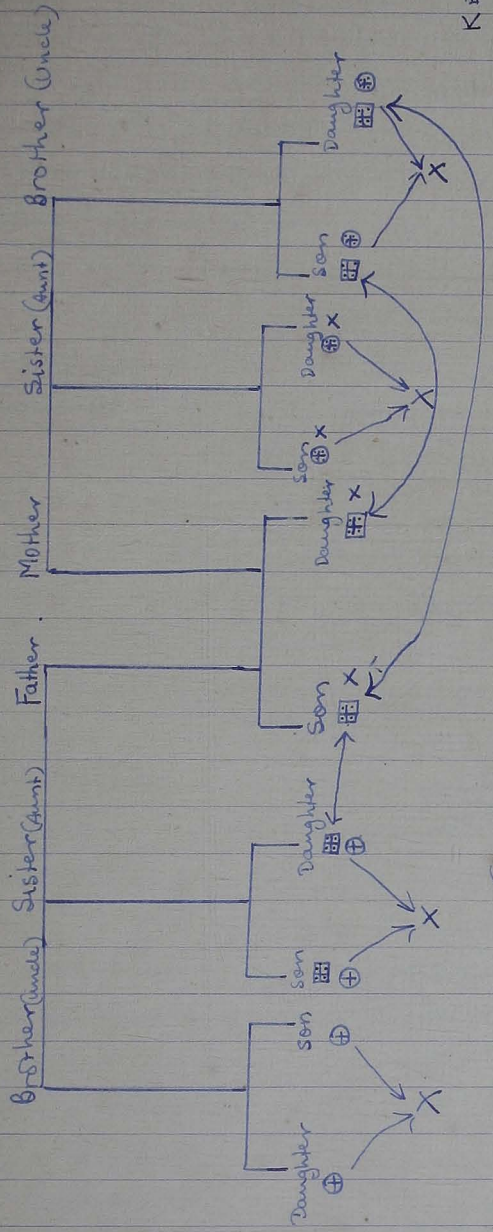 Brother(uncle) Sister(Aunt) Father. Mother Sister(Aunt) Brother(Uncle)
Daughter Son Son Daughter Son Daughter Son Daughter Son Daughter
X X X X
X X X X